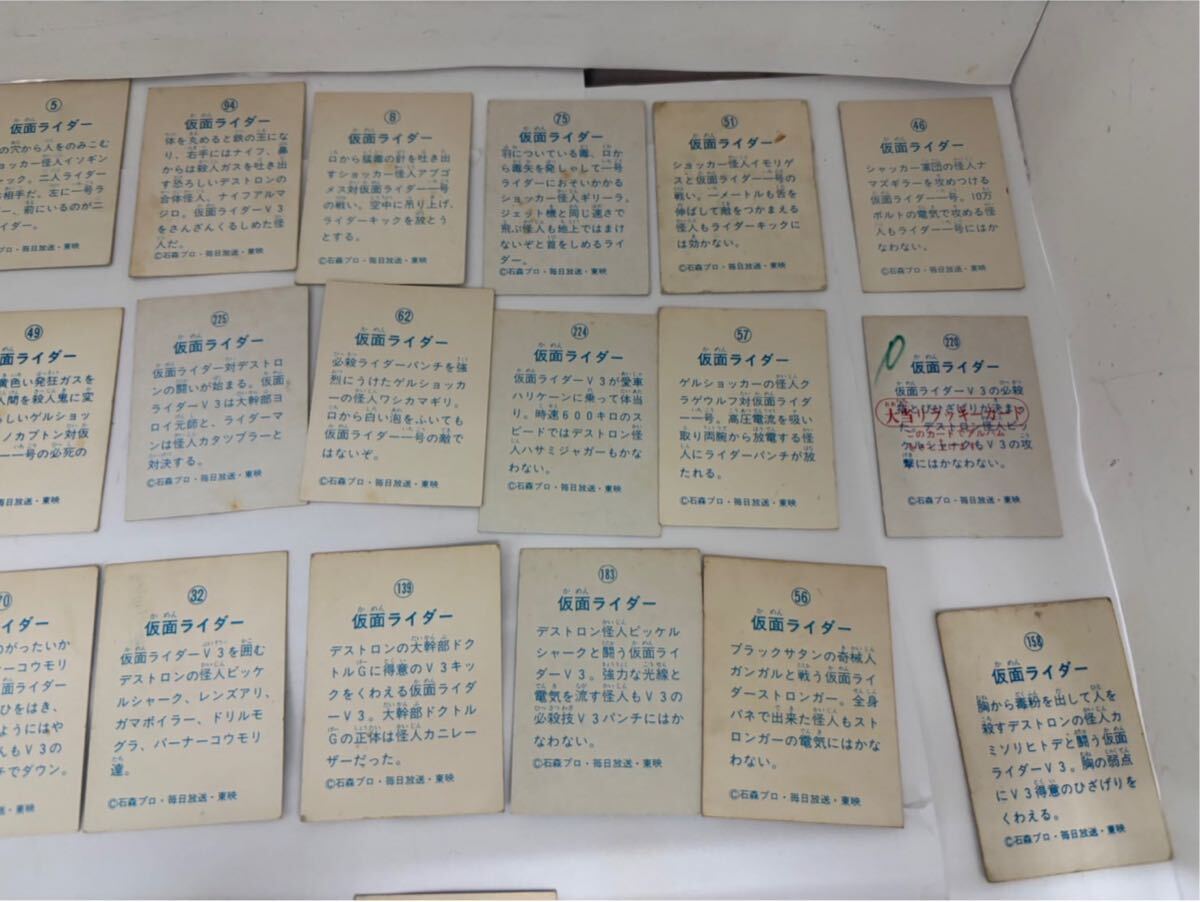 5
仮面ライダー
の穴から人をのみこむ
ショッカー怪人イソギン
ャック。二人ライダー
相手だ。左に一号ラ
ー、前にいるのが二
イダー。
©石森プロ・毎日放送・東映
94
仮面ライダー
体を丸めると鉄の玉にな
り、右手にはナイフ、鼻
からは殺人ガスを吐き出
す恐ろしいデストロンの
合体怪人、ナイフアルマ
ジロ。仮面ライダーV3
をさんざんくるしめた怪
人だ。
©石森プロ・毎日放送・東映
8
仮面ライダー
口から猛毒の針を吐き出
すショッカー怪人アブゴ
メス対仮面ライダー一号
の戦い。空中に吊り上げ、
ライダーキックを放とう
とする。
©石森プロ・毎日放送・東映
75
仮面ライダー
羽についている毒、口か
ら毒矢を発しゃして一号
ライダーにおそいかかる
ショッカー怪人ギリーラ。
ジェット機と同じ速さで
飛ぶ怪人も地上ではまけ
ないぞと首をしめるライ
ダー。
©石森プロ・毎日放送・東映
51
仮面ライダー
ショッカー怪人イモリゲ
スと仮面ライダー一号の
戦い。一メートルも舌を
伸ばして敵をつかまえる
怪人もライダーキックに
は効かない。
©石森プロ・毎日放送・東映
46
仮面ライダー
シャッカー軍団の怪人ナ
マズギラーを攻めつける
仮面ライダー一号。10万
ボルトの電気で攻める怪
人もライダー一号にはか
なわない。
©石森プロ・毎日放送・東映
49
仮面ライダー
黄色い発狂ガスを
人間を殺人鬼に変
らしいゲルショッ
ノカブトン対仮
一号の必死の
©石森プロ・毎日放送・東映
225
仮面ライダー
仮面ライダー対デストロ
ンの闘いが始まる。仮面
ライダーV3は大幹部ヨ
ロイ元師と、ライダーマ
ンは怪人カタツブラーと
対決する。
©石森プロ・毎日放送・東映
62
仮面ライダー
必殺ライダーパンチを強
烈にうけたゲルショッカ
ーの怪人ワシカマギリ。
口から白い泡をふいても
仮面ライダー一号の敵で
はないぞ。
©石森プロ・毎日放送・東映
224
仮面ライダー
仮面ライダーV3が愛車
ハリケーンに乗って体当
り。時速600キロのス
ピードではデストロン怪
人ハサミジャガーもかな
わない。
©石森プロ・毎日放送・東映
57
仮面ライダー
ゲルショッカーの怪人ク
ラゲウルフ対仮面ライダ
ー一号。高圧電流を吸い
取り両腕から放電する怪
人にライダーパンチが放
たれる。
©石森プロ・毎日放送・東映
220
仮面ライダー
仮面ライダーV3の必殺
大当りラッキーカード
このカードでアルバム
デストロン怪人ピッ
V3の攻
撃にはかなわない。
©石森プロ・毎日放送・東映
70
イダー
がったいか
ーコウモリ
面ライダー
ひをはき、
ようにはや
んもV3の
チでダウン。
・毎日放送・東映
32
仮面ライダー
仮面ライダーV3を囲む
デストロンの怪人ピッケ
ルシャーク、レンズアリ、
ガマボイラー、ドリルモ
グラ、バーナーコウモリ
達。
©石森プロ・毎日放送・東映
139
仮面ライダー
デストロンの大幹部ドク
トルGに得意のV3キッ
クをくわえる仮面ライダ
ーV3。大幹部ドクトル
Gの正体は怪人カニレー
ザーだった。
©石森プロ・毎日放送・東映
183
仮面ライダー
デストロン怪人ピッケル
シャークと闘う仮面ライ
ダーV3。強力な光線と
電気を流す怪人もV3の
必殺技V3パンチにはか
なわない。
©石森プロ・毎日放送・東映
56
仮面ライダー
ブラックサタンの奇械人
ガンガルと戦う仮面ライ
ダーストロンガー。全身
バネで出来た怪人もスト
ロンガーの電気にはかな
わない。
©石森プロ・毎日放送・東映
158
仮面ライダー
胸から毒粉を出して人を
殺すデストロンの怪人カ
ミソリヒトデと闘う仮面
ライダーV3。胸の弱点
にV3得意のひざげりを
くわえる。
©石森プロ・毎日放送・東映